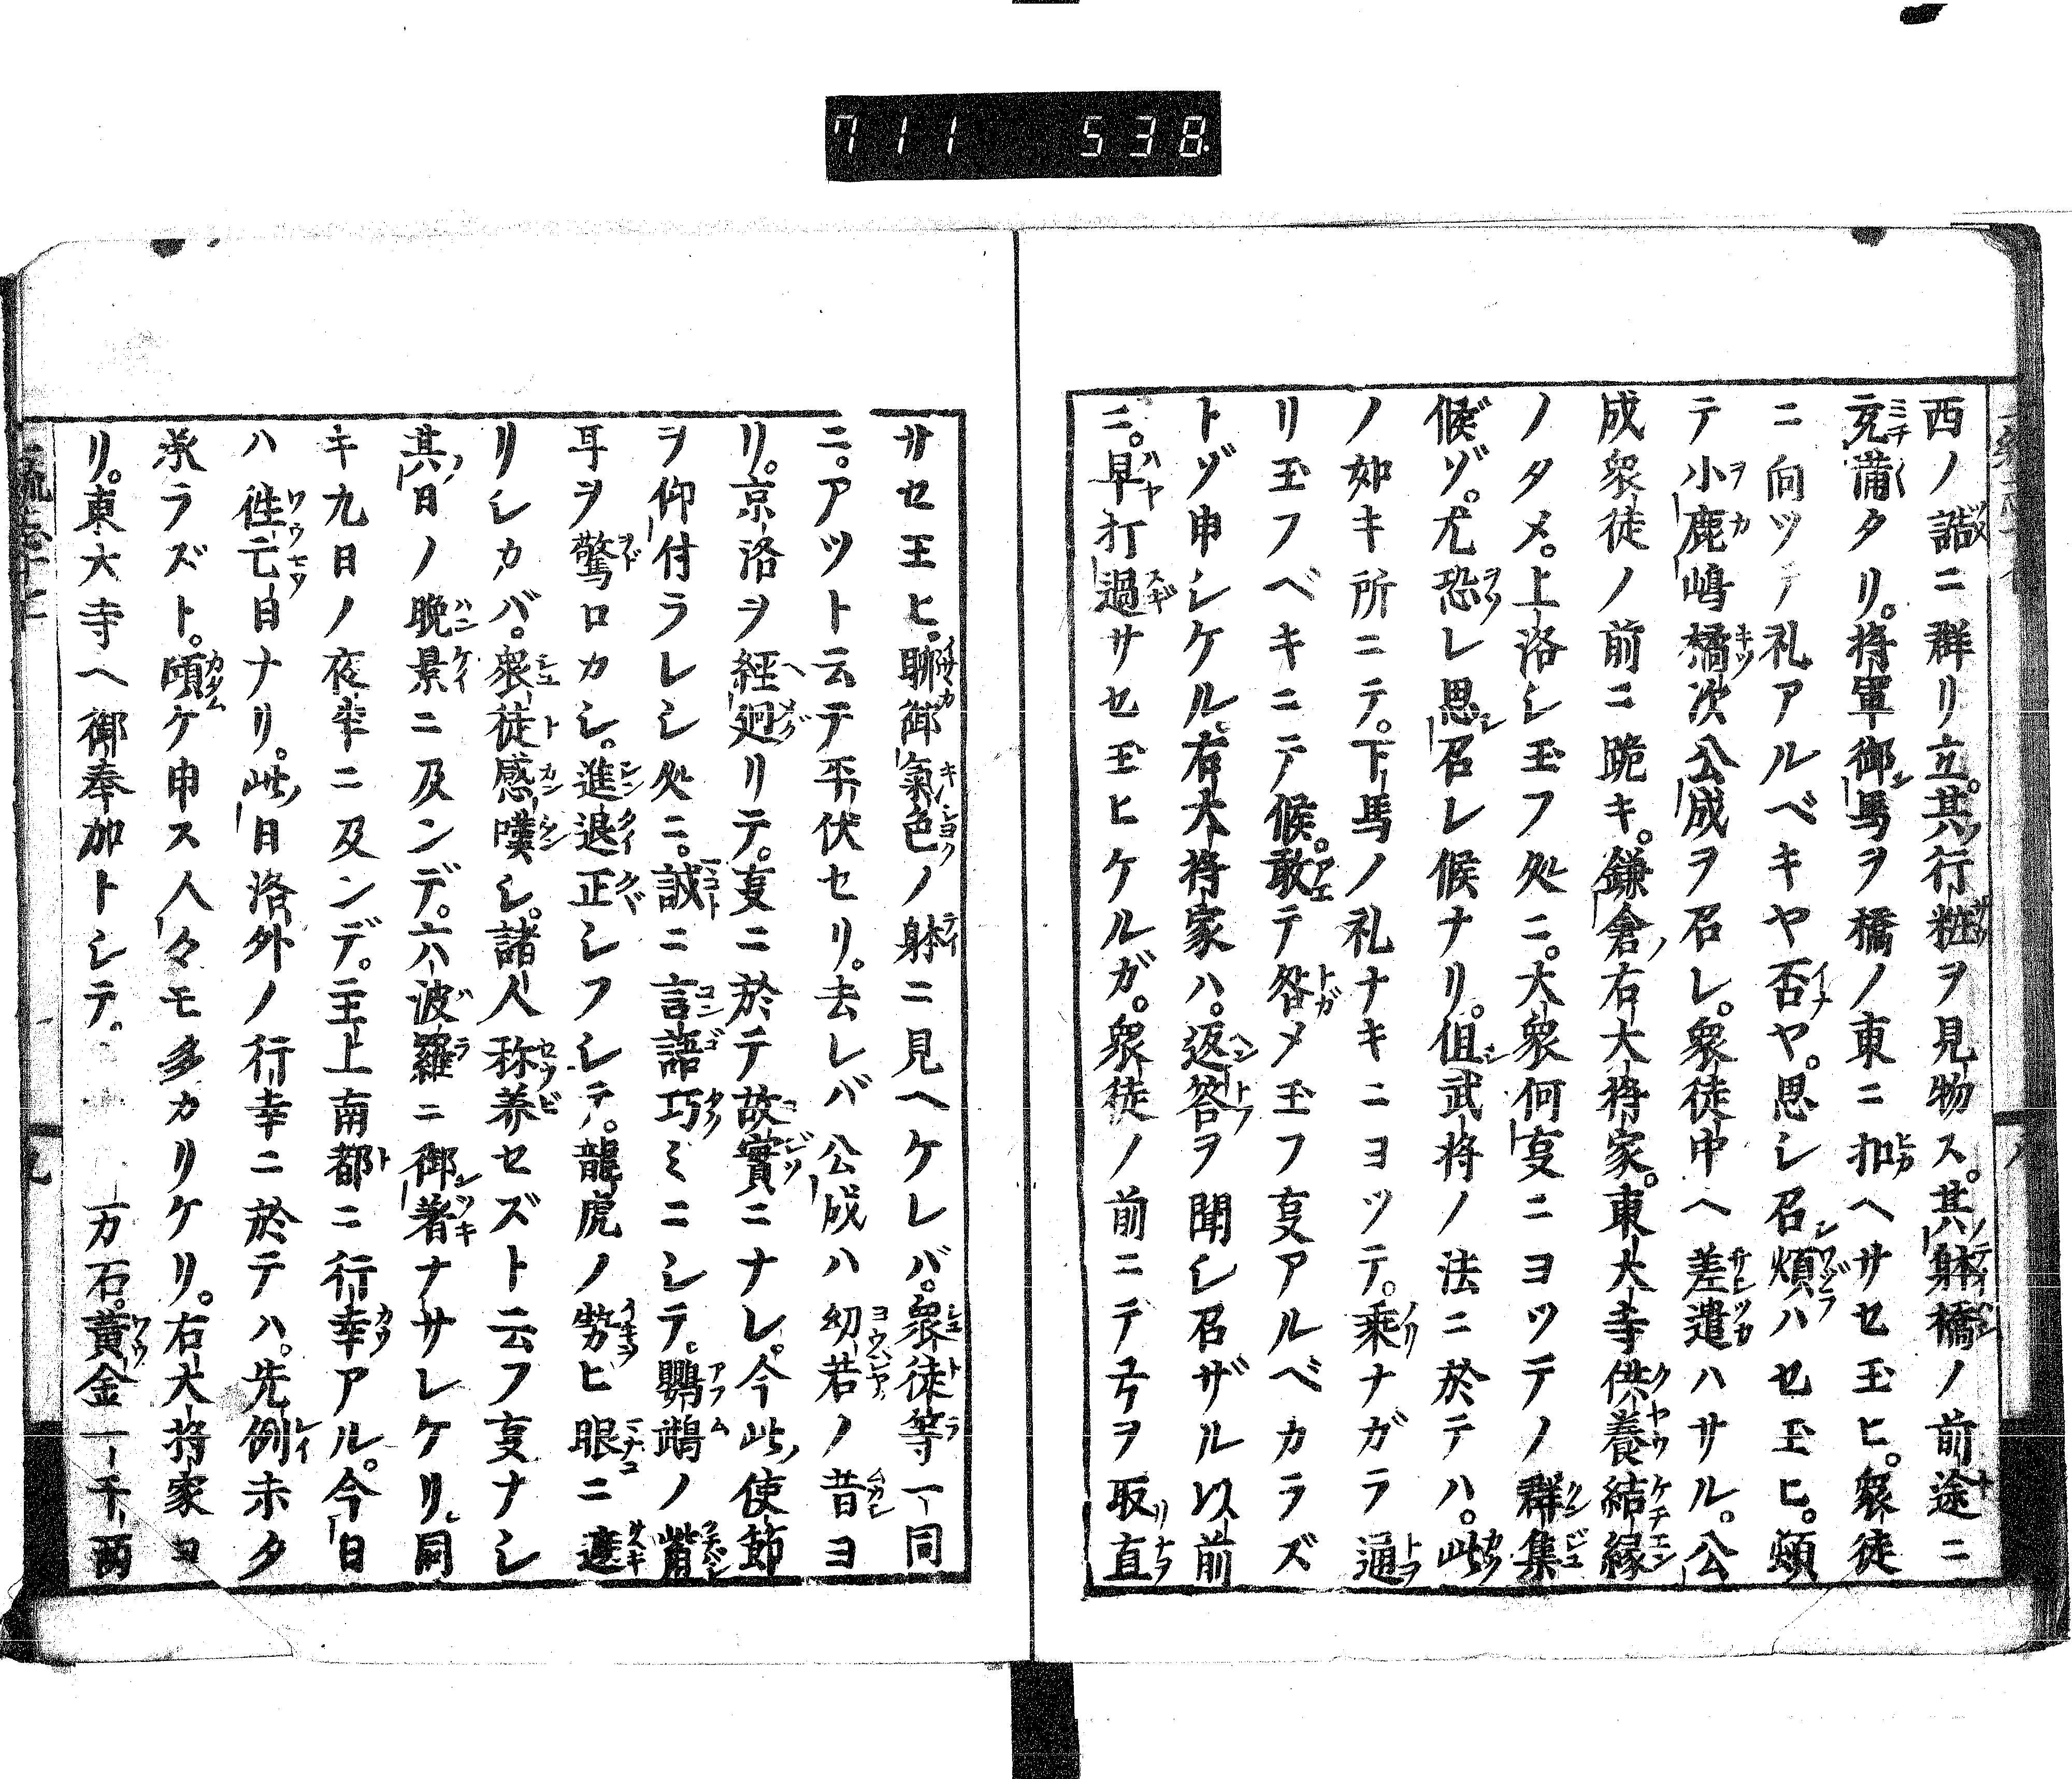 711 538
西ノ詰ニ群リ立。其行粧ヲ見物ス。其躰橋ノ前途ニ
充蒲タリ。将軍御馬ヲ橋ノ東ニ扣ヘサセ玉ヒ。衆徒
ニ向ツテ礼アルベキヤ否ヤ。思シ召煩ハセ玉ヒ。頻
テ小鹿嶋橘次公成ヲ召レ。衆徒中ヘ差遣ハサル。公
成衆徒ノ前ニ跪キ。鎌倉右大将家。東大寺供養結縁
ノタメ。上洛シ玉フ処ニ。大衆何㕝ニヨツテノ群集
候ゾ。尤恐レ思召レ候ナリ。但武将ノ法ニ於テハ。此
ノ如キ所ニテ。下馬ノ礼ナキニヨツテ。乗ナガラ通
リ玉フベキニテ候。敢テ咎メ玉フ㕝アルベカラズ
トゾ申シケル。右大将家ハ。返答ヲ聞シ召ザル以前
ニ。早打過サセ玉ヒケルガ。衆徒ノ前ニテ弓ヲ取直
サセ玉ヒ。聊御氣色ノ躰ニ見ヘケレバ。衆徒等一同
ニ。アツト云テ平伏セリ。去レバ公成ハ幼若ノ昔ヨ
リ。京洛ヲ經廻リテ。㕝ニ於テ故實ニナレ。今此使節
ヲ仰付ラレシ処ニ。誠ニ言語巧ミニシテ。鸚鵡ノ觜
耳ヲ驚ロカシ。進退正シフシテ。龍虎ノ勢ヒ眼ニ遮
リシカバ。衆徒感嘆シ。諸人称美セズト云フ㕝ナシ
其日ノ晩景ニ及ンデ。六波羅ニ御着ナサレケリ。同
キ九日ノ夜半ニ及ンデ。主上南都ニ行幸アル。今日
ハ徃亡日ナリ。此日洛外ノ行幸ニ於テハ。先例未タ
承ラズト。傾ケ申ス人々モ多カリケリ。右大将家ヨ
リ。東大寺ヘ御奉加トシテ。一万石。黄金一千両